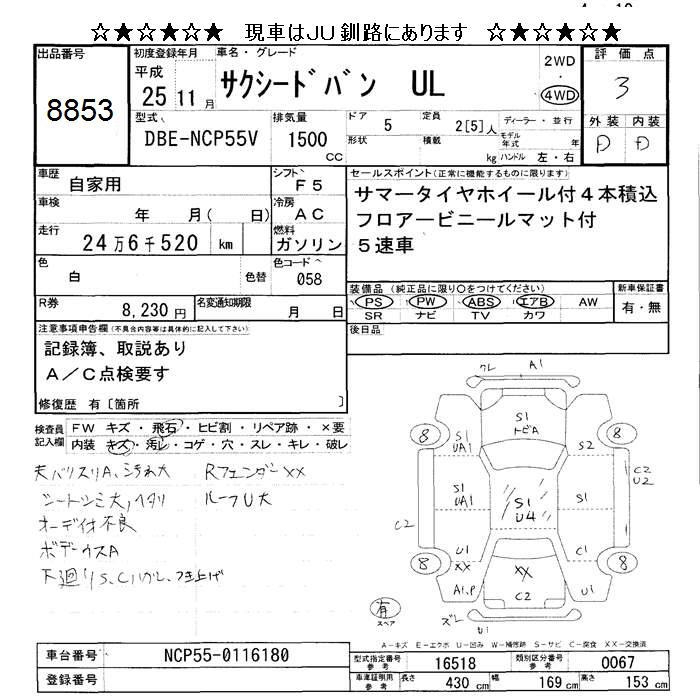 ☆★☆★☆★ 現車はJU釧路にあります ☆★☆★☆★
出品番号
8853
初度登録年月
平成
25年11月
車名・グレード
サクシードバン UL
2WD
・
4WD
評価点
3
外装 内装
D D
型式
DBE-NCP55V
排気量
1500
CC
ドア
5
定員
2[5]人
形状
積載
kg
ディーラー・並行
モデル年式 年
ハンドル 左・右
車歴
自家用
シフト
F5
車検
年 月( 日)
冷房
AC
走行
24万6千520 km
燃料
ガソリン
色
白
色替
色コード
058
R券
8,230円
名変通知期限
月 日
セールスポイント(正常に機能するものに限ります)
サマータイヤホイール付4本積込
フロアービニールマット付
5速車
装備品(純正品に限り○をつけてください)
PS PW ABS エアB AW
SR ナビ TV カワ
新車保証書
有・無
後日品
注意事項申告欄(不具合内容等は具体的に記入して下さい)
記録簿、取説あり
A/C点検要す
修復歴 有[箇所 ]
検査員記入欄
FW キズ・飛石・ヒビ割・リペア跡・×要
内装 キズ・汚レ・コゲ・穴・スレ・キレ・破レ
Rフェンダー××
シートシミ大,ヘタリ
ルーフU大
オーディオ不良
ボデーウスA
クレ A1
S1
トビA
8
8
S1
UA1
S2
C2
U2
S1
UA1
S1
U4
S1
C2
U1
××
C1
8
8
××
C2
A1,P
U1
有
スペア
ズレ
U1
A-キズ E-エクボ U-凹み W-補修跡 S-サビ C-腐食 XX-交換済
車台番号
NCP55-0116180
登録番号
型式指定番号
参考
16518
類別区分番号
参考
0067
車庫証明用
参考
長さ
430 cm
幅
169 cm
高さ
153 cm